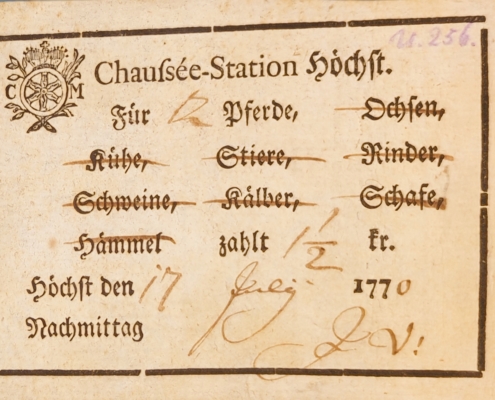 U. 256.
C M
Chaussée-Station Höchst.
Für 2 Pferde, Ochsen,
Kühe, Stiere, Rinder,
Schweine, Kälber, Schafe,
Hämmel zahlt 1 1/2 kr.
Höchst den 17 July 1770
Nachmittag